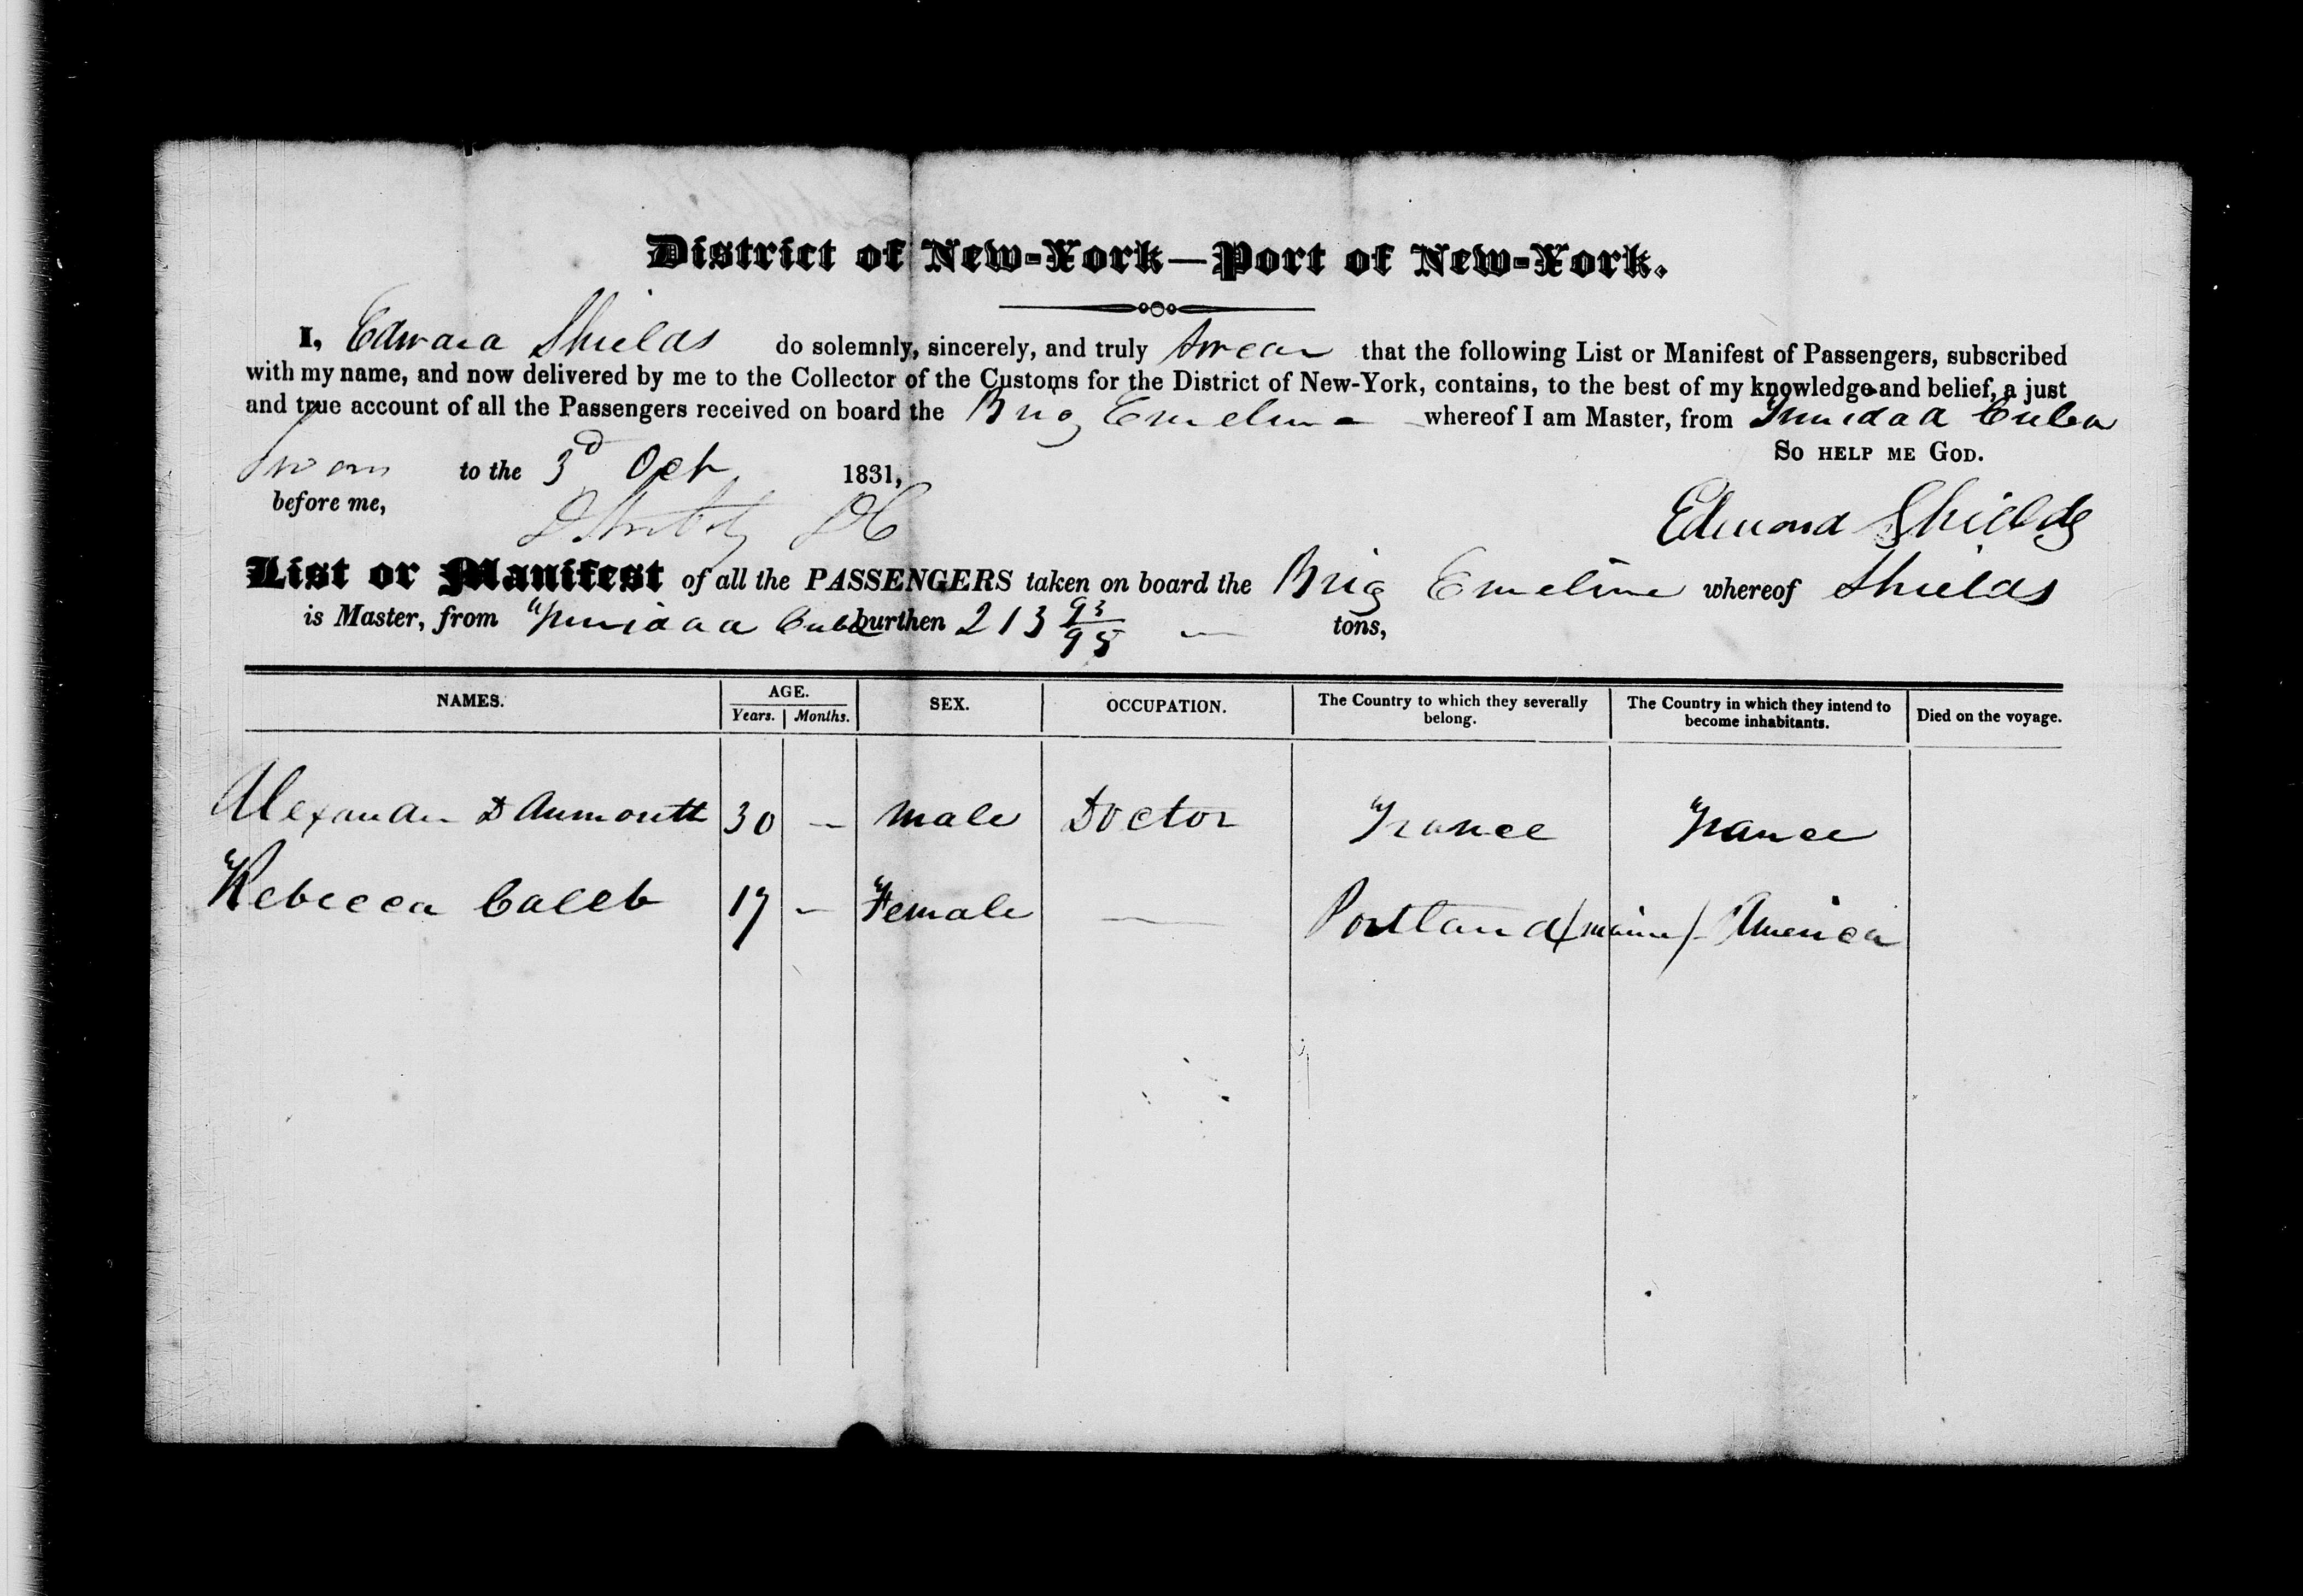 District of New-York—Port of New-York.
I, Edward Shields do solemnly, sincerely, and truly swear that the following List or Manifest of Passengers, subscribed
with my name, and now delivered by me to the Collector of the Customs for the District of New-York, contains, to the best of my knowledge and belief, a just
and true account of all the Passengers received on board the Brig Emeline whereof I am Master, from Trinidad Cuba
So help me God.
Sworn to the 3d Oct 1831,
before me,
Edward Shields
List or Manifest of all the PASSENGERS taken on board the Brig Emeline whereof Shields
is Master, from Trinidad Cuba burthen 213 93/95 tons,
NAMES. AGE. SEX. OCCUPATION. The Country to which they severally belong. The Country in which they intend to become inhabitants. Died on the voyage.
Years. Months.
Alexander D 30 — Male Doctor France France
Rebecca Caleb 17 — Female — Portland (Maine) America